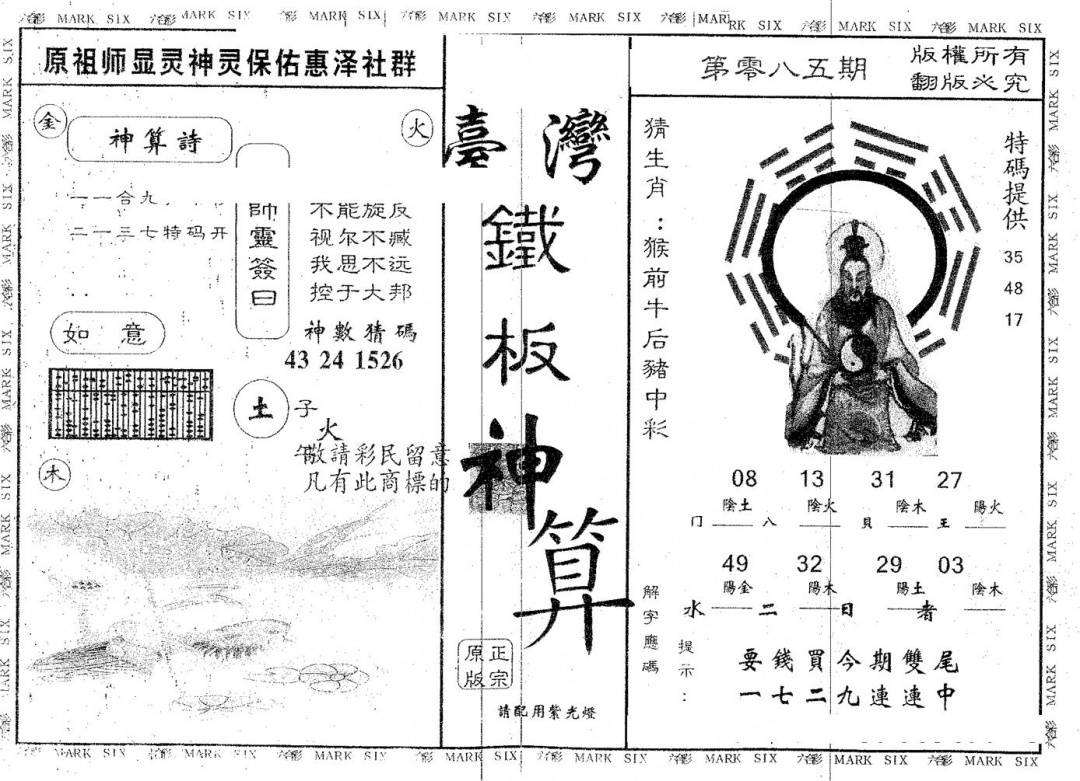 六合彩 MARK SIX 六合彩 MARK SIX 六合彩 MARK SIX 六合彩 MARK SIX 六合彩 MARK SIX 六合彩 MARK SIX 六合彩 MARK SIX
原祖师显灵神灵保佑惠泽社群
金
神算詩
火
一一合九
二一三七特码开
帥靈簽曰
不能旋反
视尔不臧
我思不远
控于大邦
如意
神數猜碼
43 24 1526
土
子
火
敬請彩民留意
凡有此商標的
木
臺灣
鐵
板
神
算
正宗
原版
請配用紫光燈
第零八五期
版權所有
翻版必究
猜生肖：猴前牛后豬中彩
特碼提供
35
48
17
08 13 31 27
陰土 陰火 陰木 陽火
门 八 貝 王
49 32 29 03
陽金 陽木 陽土 陰木
水 二 日 者
解字應碼
提示：
要錢買今期雙尾
一七二九連連中
六合彩 MARK SIX 六合彩 MARK SIX 六合彩 MARK SIX 六合彩 MARK SIX 六合彩 MARK SIX 六合彩 MARK SIX 六合彩 MARK SIX